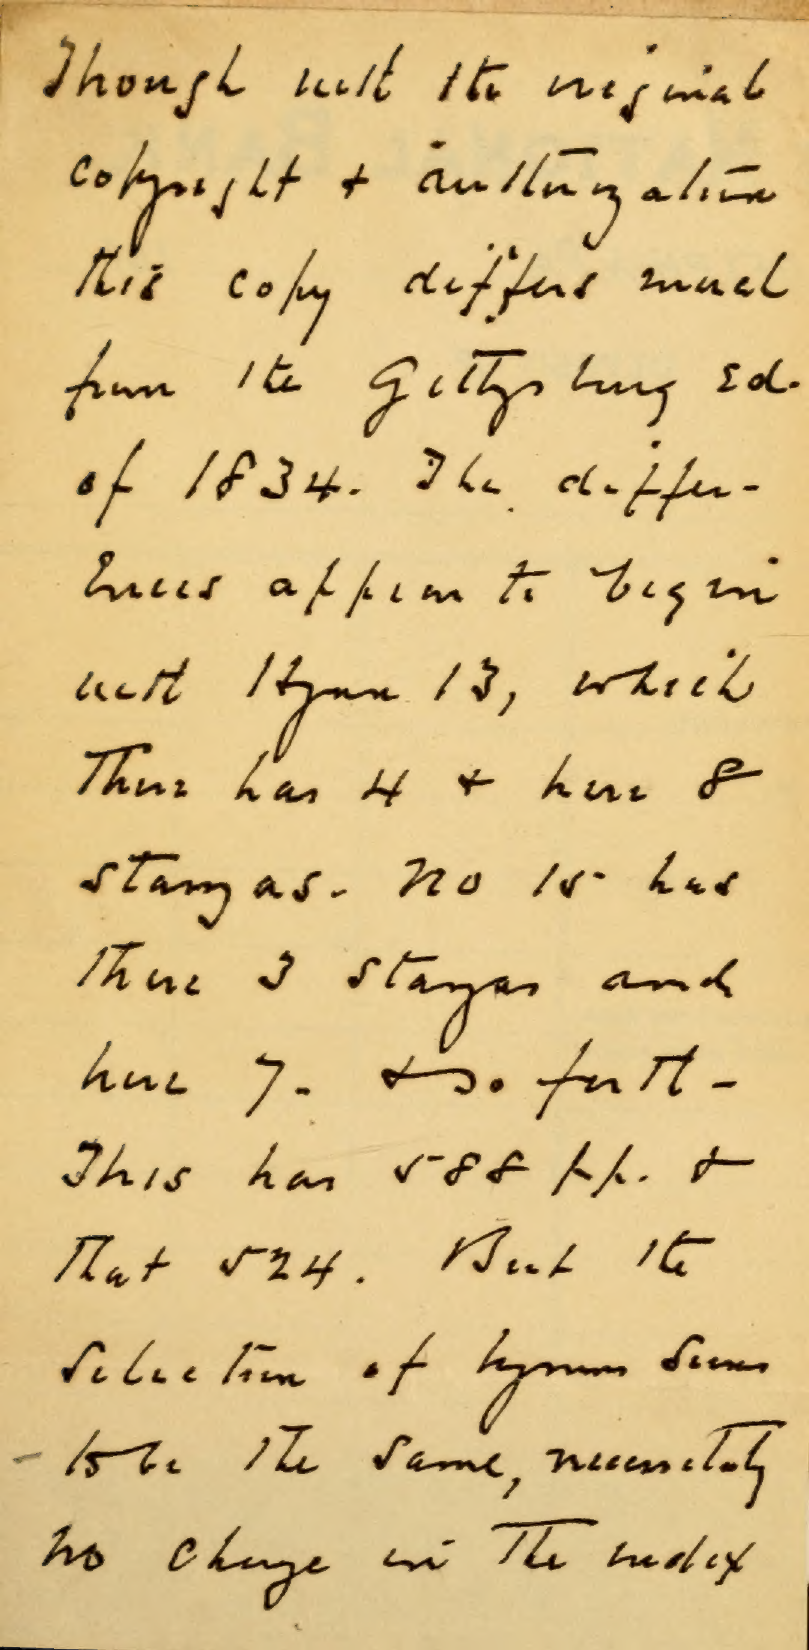 Though with the original
copyright + authorization
this copy differs much
from the Gettysburg Ed.
of 1834. The differ-
ences appear to begin
with Hymn 13, which
there has 4 + here 8
stanzas. No 15 has
there 3 stanzas and
here 7. + so forth -
This has 588 pp. +
that 524. But the
selection of hymns seems
to be the same, necessitatg
no change in the index